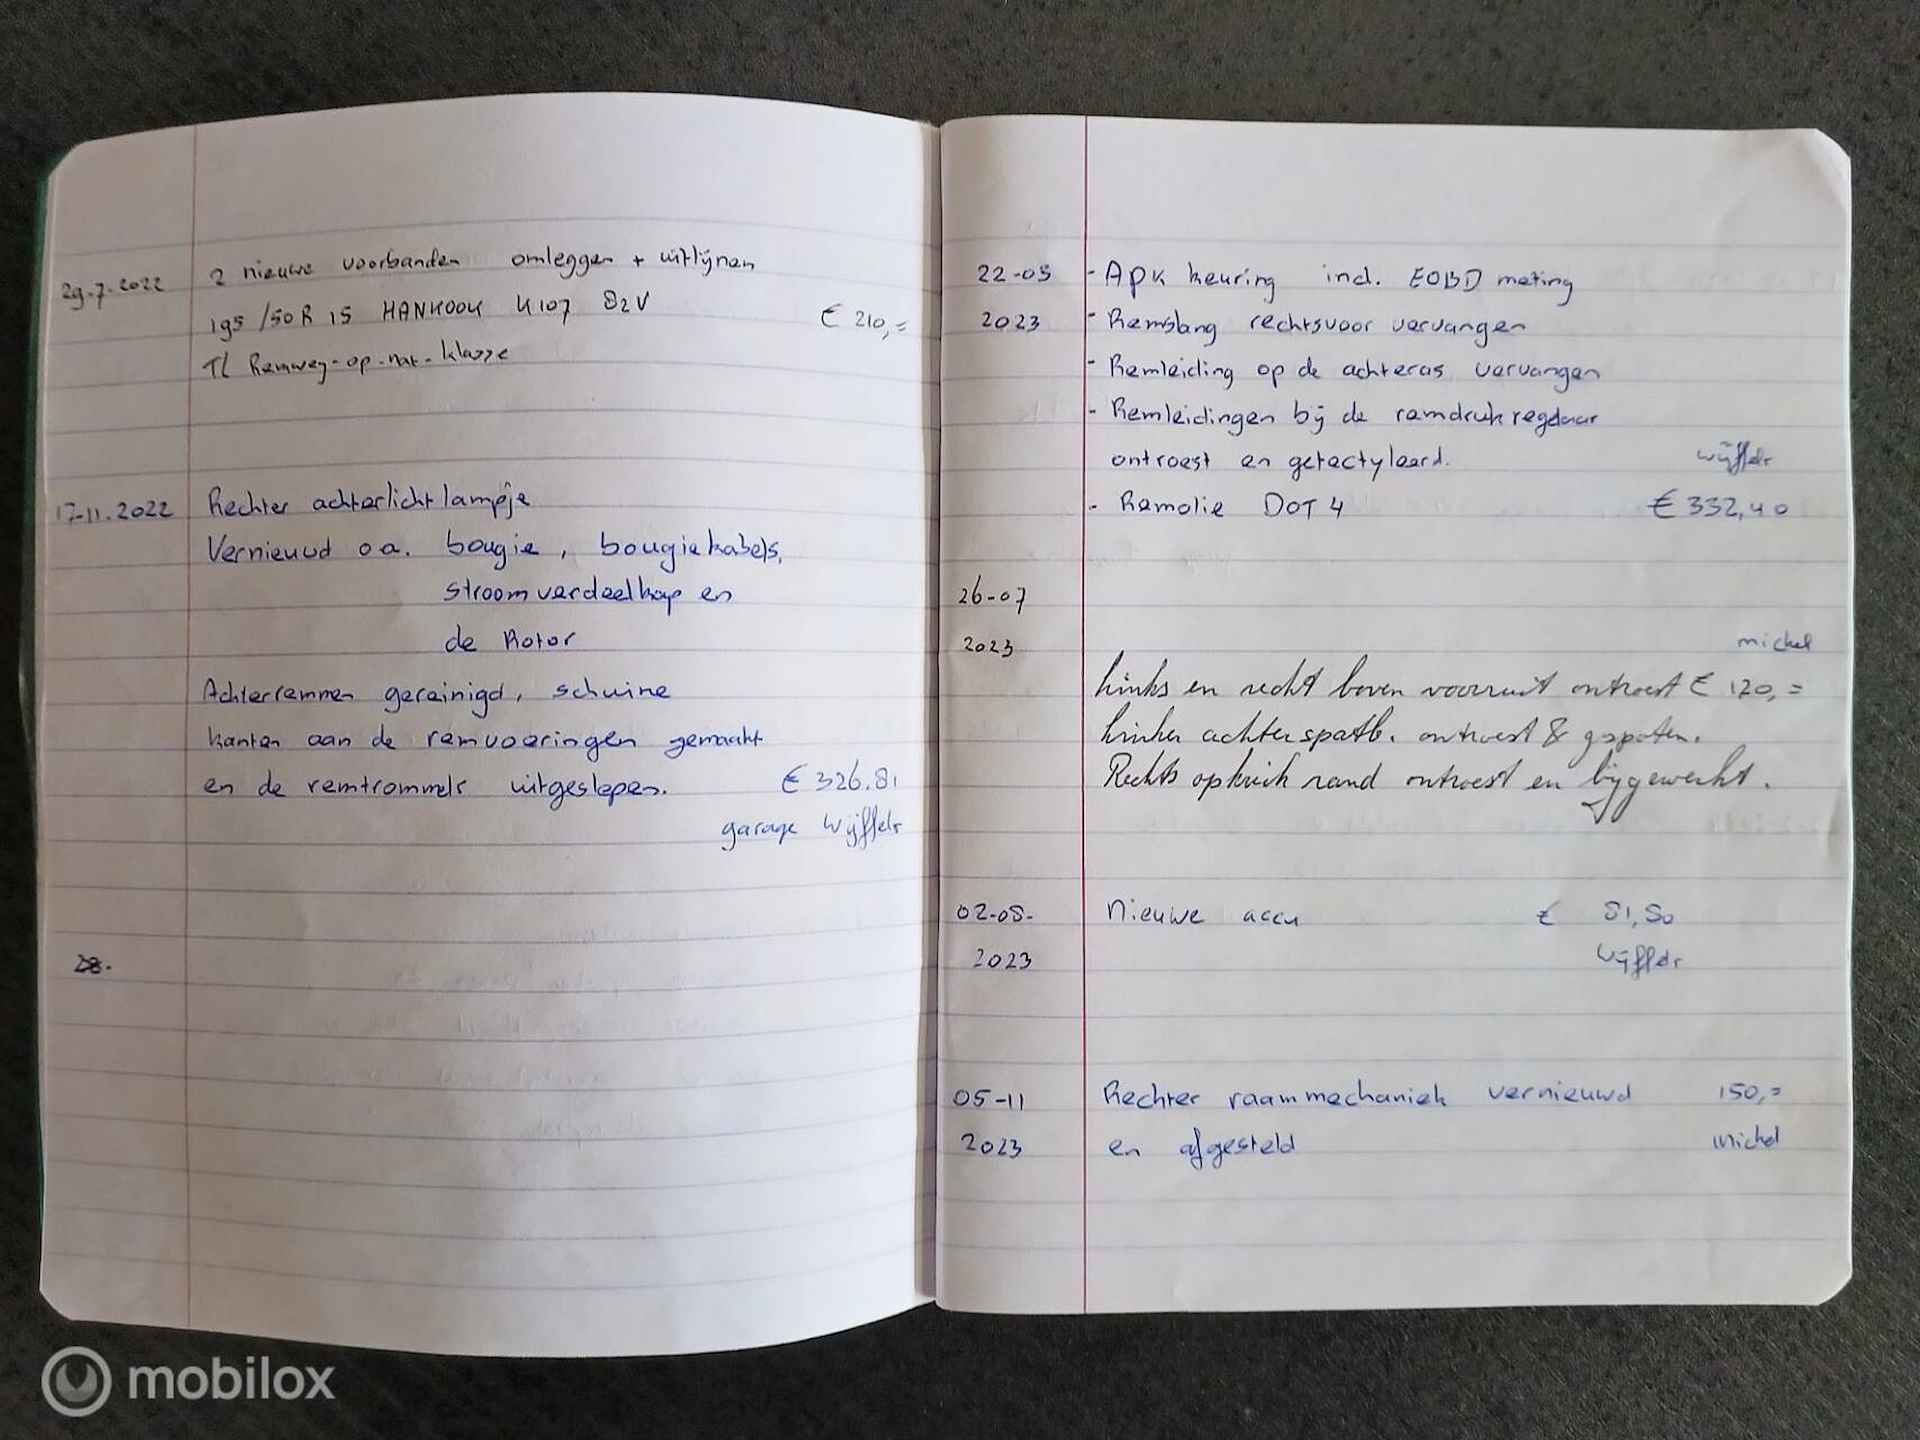 29-7-2022 2 nieuwe voorbanden omleggen + uitlijnen
195/50R 15 HANKOOK K107 82V € 210,=
TL Remweg-op-nat-klasse
17-11-2022 Rechter achterlicht lampje
Vernieuwd o.a. bougie, bougiekabels,
stroomverdeelkap en
de Rotor
Achterremmen gereinigd, schuine
kanten aan de remvoeringen gemaakt
en de remtrommels uitgeslepen. € 326,81
garage Wijffels
28.
22-05 - Apk keuring incl. EOBD meting
2023 - Remslang rechtsvoor vervangen
- Remleiding op de achteras vervangen
- Remleidingen bij de remdrukregelaar
ontroest en getectyleerd. Wijffels
- Remolie DOT 4 € 332,40
26-07
2023 michel
Links en recht boven voorruit ontroest € 120,=
Linker achter spatb. ontroest & gespoten.
Rechts opkrik rand ontroest en bijgewerkt.
02-08- Nieuwe accu € 81,80
2023 Wijffels
05-11 Rechter raammechaniek vernieuwd 150,=
2023 en afgesteld Michel
mobilox